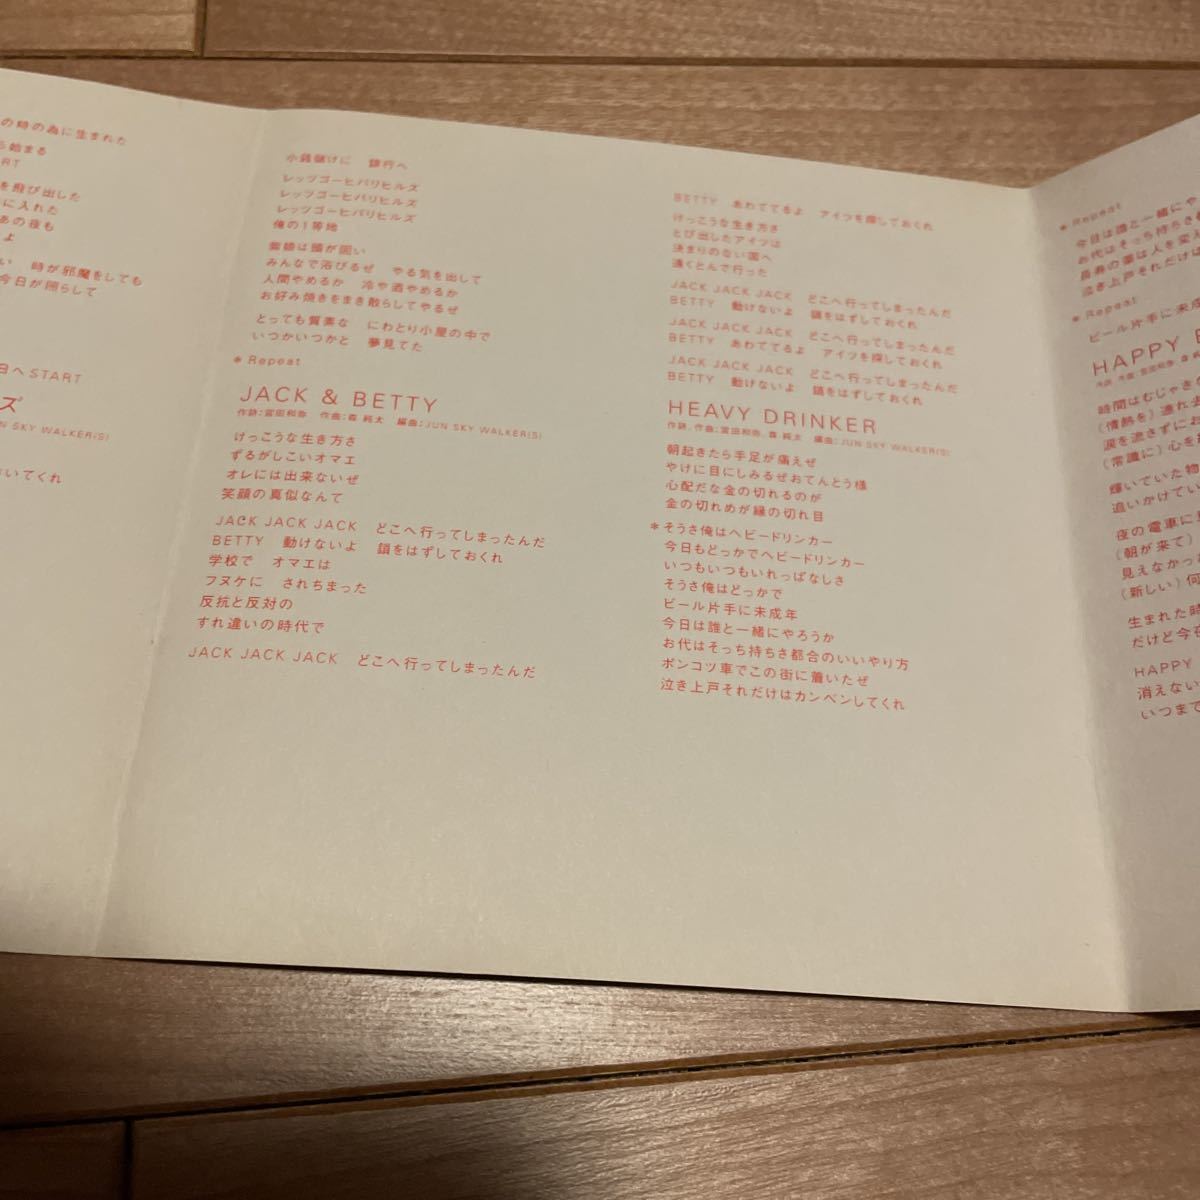 の時の為に生まれた
始まる
ART
を飛び出した
に入れた
あの夜も
よ
い 時が邪魔をしても
今日が照らして
日へSTART
ズ
UN SKY WALKER(S)
おいてくれ
小銭儲けに 銀行へ
レッツゴーヒバリヒルズ
レッツゴーヒバリヒルズ
レッツゴーヒバリヒルズ
俺の1等地
御娘は頭が固い
みんなで浴びるぜ やる気を出して
人間やめるか 冷や酒やめるか
お好み焼きをまき散らしてやるぜ
とっても質素な にわとり小屋の中で
いつかいつかと 夢見てた
＊Repeat
JACK & BETTY
作詩:宮田和弥 作曲:森 純太 編曲:JUN SKY WALKER(S)
けっこうな生き方さ
ずるがしこいオマエ
オレには出来ないぜ
笑顔の真似なんて
JACK JACK JACK どこへ行ってしまったんだ
BETTY 動けないよ 鎖をはずしておくれ
学校で オマエは
フヌケに されちまった
反抗と反対の
すれ違いの時代で
JACK JACK JACK どこへ行ってしまったんだ
BETTY あわててるよ アイツを探しておくれ
けっこうな生き方さ
とび出したアイツは
決まりのない国へ
遠くとんで行った
JACK JACK JACK どこへ行ってしまったんだ
BETTY 動けないよ 鎖をはずしておくれ
JACK JACK JACK どこへ行ってしまったんだ
BETTY あわててるよ アイツを探しておくれ
JACK JACK JACK どこへ行ってしまったんだ
BETTY 動けないよ 鎖をはずしておくれ
HEAVY DRINKER
作詩、作曲:宮田和弥、森 純太 編曲:JUN SKY WALKER(S)
朝起きたら手足が痛えぜ
やけに目にしみるぜおてんとう様
心配だな金の切れるのが
金の切れめが縁の切れ目
＊そうさ俺はヘビードリンカー
今日もどっかでヘビードリンカー
いつもいつもいれっぱなしさ
そうさ俺はどっかで
ビール片手に未成年
今日は誰と一緒にやろうか
お代はそっち持ちさ都合のいいやり方
ポンコツ車でこの街に着いたぜ
泣き上戸それだけはカンベンしてくれ
＊Repeat
今日は誰と一緒にや
お代はそっち持ちさ
長寿の薬は人を変え
泣き上戸それだけは
＊Repeat
ビール片手に未成
HAPPY
時間はむじゃきな
(情熱を) 連れ去
涙を流さずにお
(常識に) 心を
輝いていた物
追いかけてい
夜の電車に
(朝が来て)
見えなかっ
(新しい) 何
生まれた時
だけど今
HAPPY
消えない
いつまで